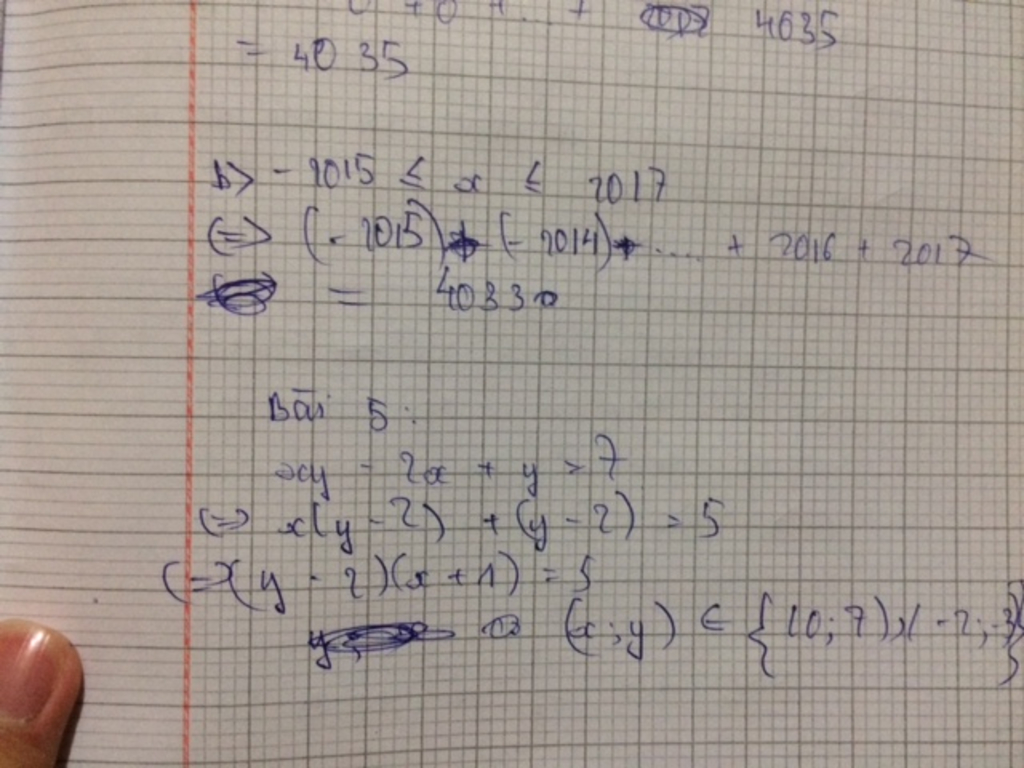 0 + 0 + ... + 4035
= 4035
b> -2015 ≤ x ≤ 2017
<=> (-2015) + (-2014) + .... + 2016 + 2017
= 4033
Bài 5:
xy - 2x + y = 7
<=> x(y - 2) + (y - 2) = 5
<=> (y - 2)(x + 1) = 5
<=> (x; y) ∈ {(0; 7), (-2; -3)}